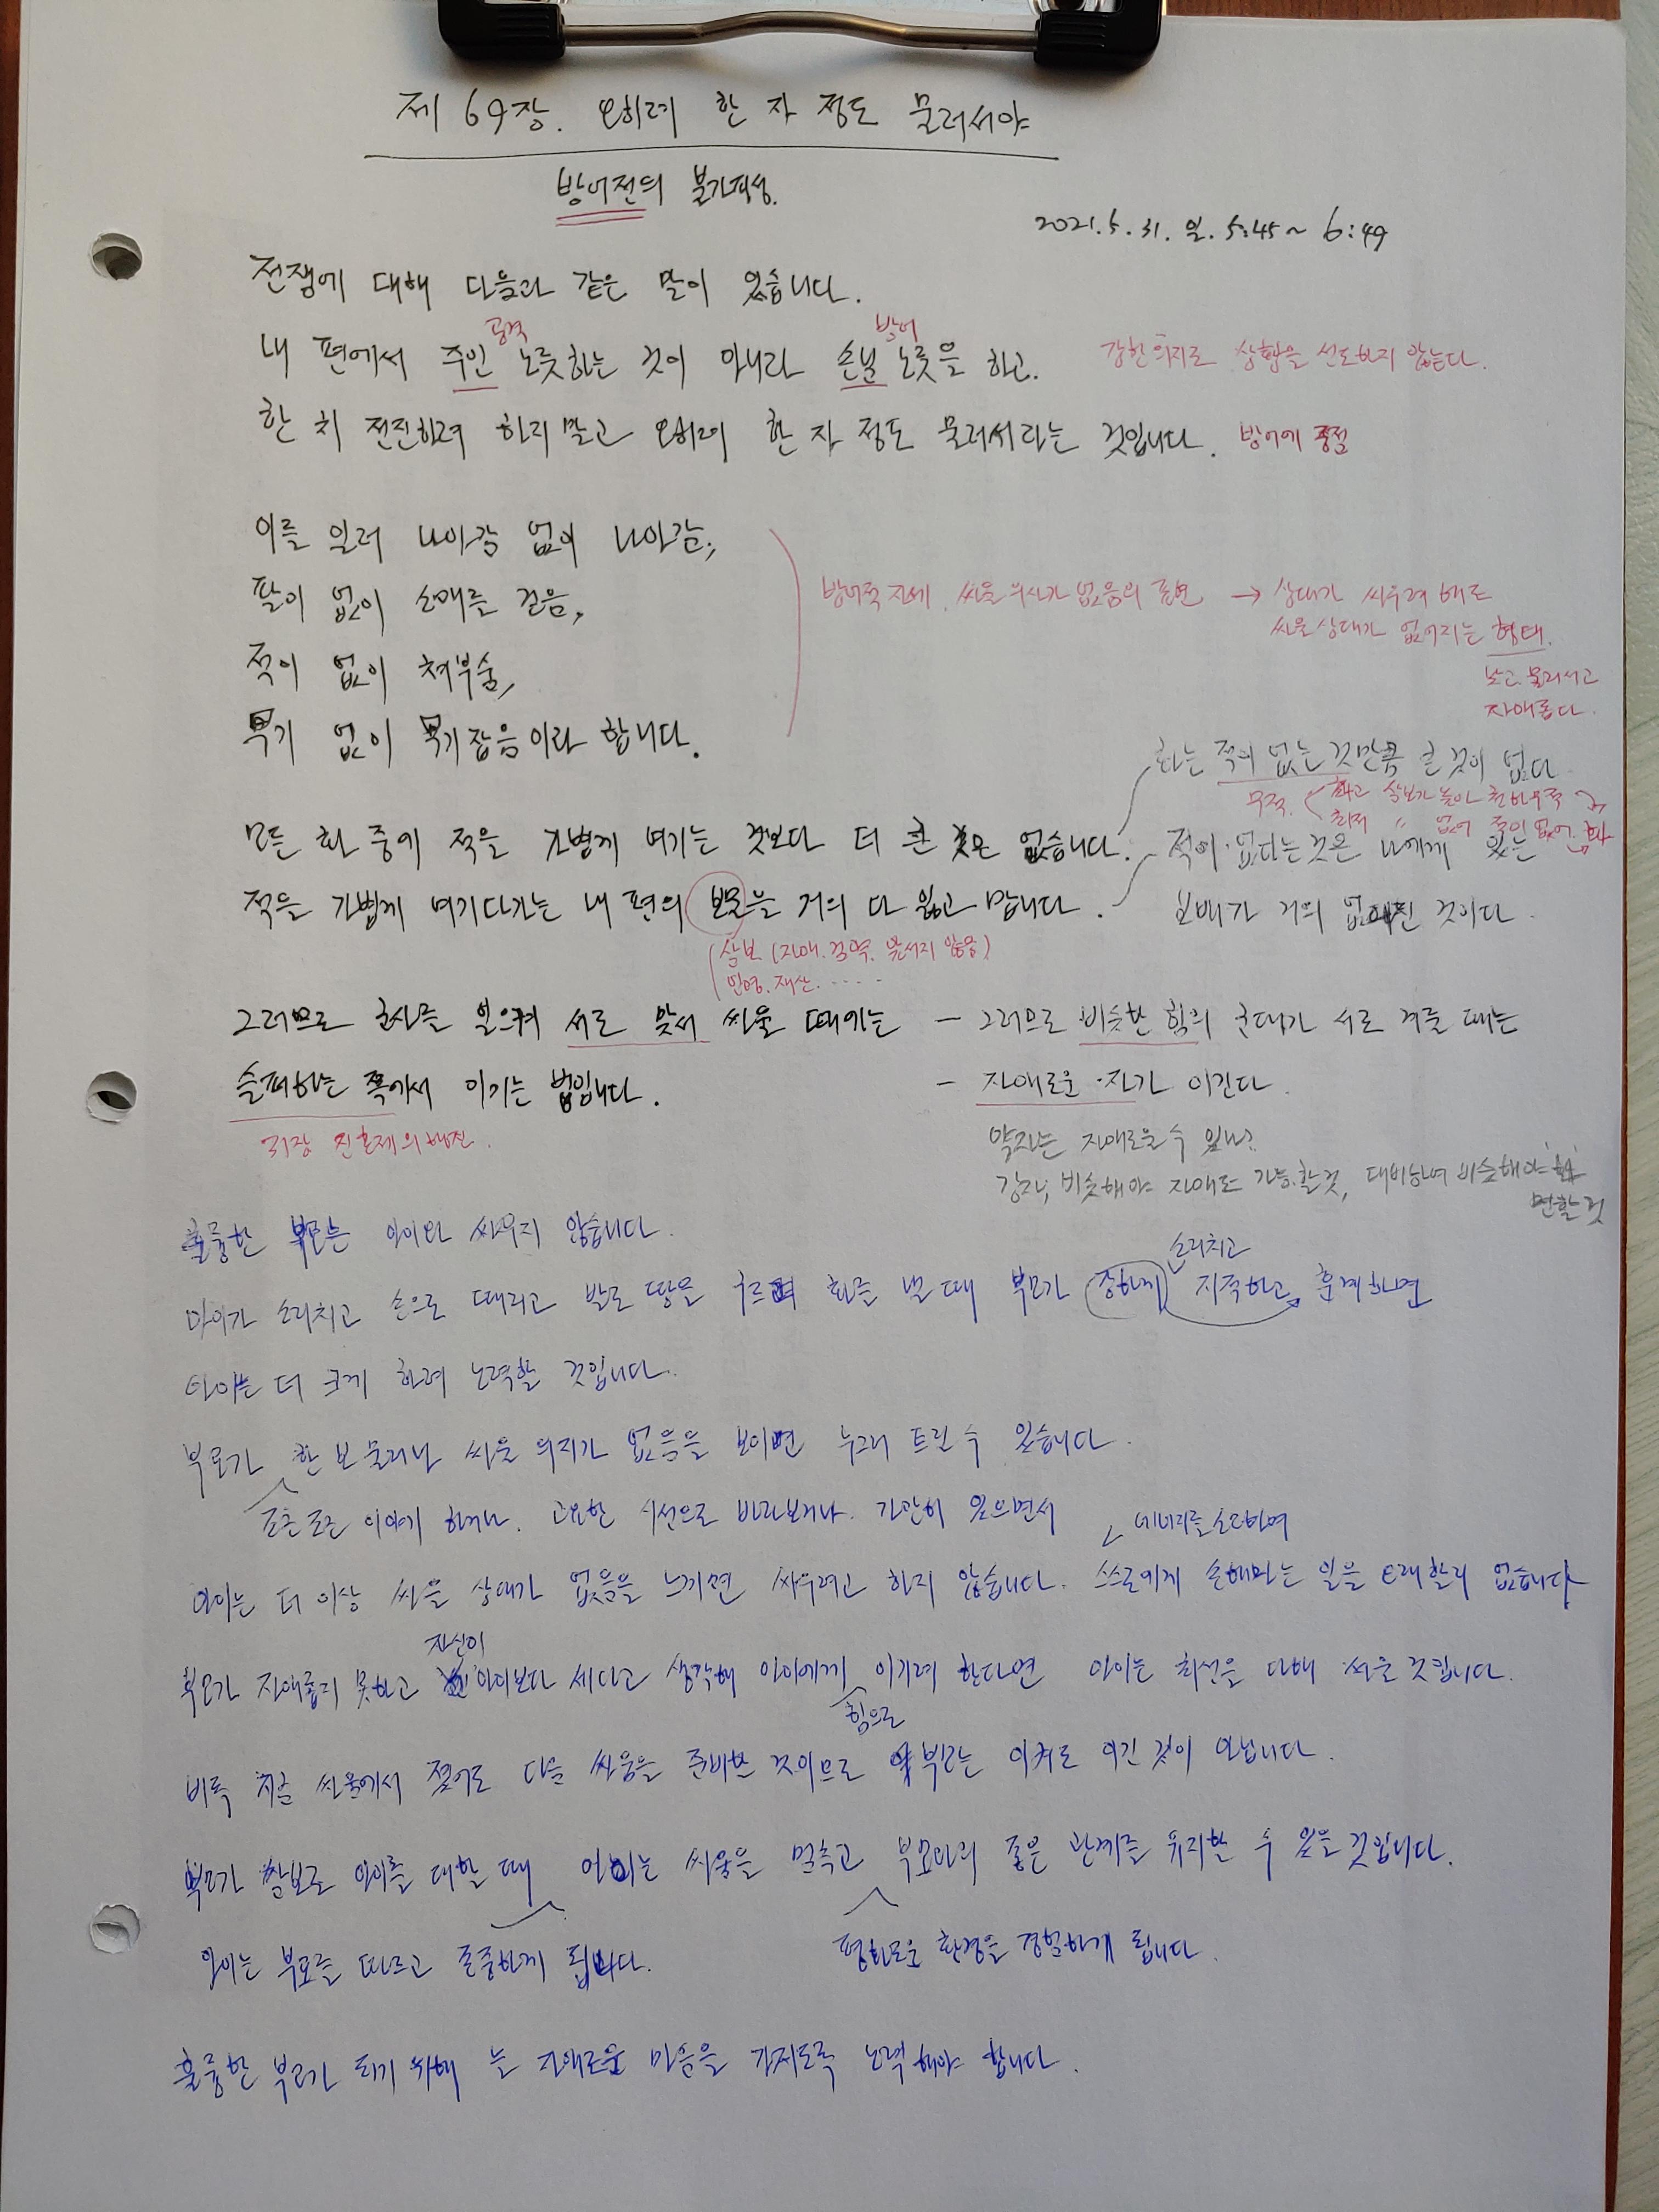 제 69장. 오히려 한 자 정도 물러서야
방어전의 불가피성.
2021. 5. 31. 월. 5:45~ 6:49
전쟁에 대해 다음과 같은 말이 있습니다.
공격 방어
내 편에서 주인 노릇하는 것이 아니라 손님 노릇을 하고. 강한 의지로 상황을 선도하지 않는다.
한 치 전진하려 하지 말고 오히려 한 자 정도 물러서라는 것입니다. 방어에 중점
이를 일러 나아감 없이 나아감,
팔이 없이 소매를 걷음,
방어적 자세. 싸울 의사가 없음의 표현 → 상대가 싸우려 해도
싸울 상대가 없어지는 형태.
적이 없이 쳐부숨,
낮고 물러서고
자애롭다.
무기 없이 무기 잡음이라 합니다.
화는 적이 없는 것만큼 큰 것이 없다
무적. 최고 삼보가 높아
최저 〃 없어 적이 없어.
모든 화 중에 적을 가볍게 여기는 것보다 더 큰 것은 없습니다. 적이 없다는 것은 나에게 있는
적을 가볍게 여기다가는 내 편의 보물을 거의 다 잃고 맙니다. 보배가 거의 없어진 것이다.
삼보 (자애. 검약. 앞서지 않음)
인명. 재산. ·····
그러므로 군사를 일으켜 서로 맞서 싸울 때에는 – 그러므로 비슷한 힘의 군대가 서로 겨룰 때는
슬퍼하는 쪽에서 이기는 법입니다. – 자애로운 자가 이긴다.
31장 진혼제의 행진.
약자는 자애로울 수 있나?
강자, 비슷해야 자애도 가능할 것, 대비하여 비슷해야
면할 것
훌륭한 부모는 아이와 싸우지 않습니다.
소리치고
아이가 소리치고 손으로 때리고 발로 땅을 구르며 화를 낼 때 부모가 강하게 지적하고 훈계하면
아이는 더 크게 하려 노력할 것입니다.
부모가 한 보 물러나 싸울 의지가 없음을 보이면 누그러 트릴 수 있습니다.
조근조근 이야기 하거나. 고요한 시선으로 바라보거나. 가만히 있으면서
에너지를 소모하여
아이는 더 이상 싸울 상대가 없음을 느끼면 싸우려고 하지 않습니다. 스스로에게 손해나는 일을 오래할리 없습니다
자신이
부모가 자애롭지 못하고 아이보다 세다고 생각해 아이에게 이기려 한다면 아이는 최선을 다해 싸울 것입니다.
힘으로
비록 지금 싸움에서 졌어도 다음 싸움을 준비할 것이므로 부모는 이겨도 이긴 것이 아닙니다.
부모가 삼보로 아이를 대할 때 아이는 싸움을 멈추고 부모와의 좋은 관계를 유지할 수 있을 것입니다.
아이는 부모를 따르고 존중하게 됩니다. 평화로운 환경을 경험하게 됩니다.
훌륭한 부모가 되기 위해 늘 자애로운 마음을 가지도록 노력해야 합니다.